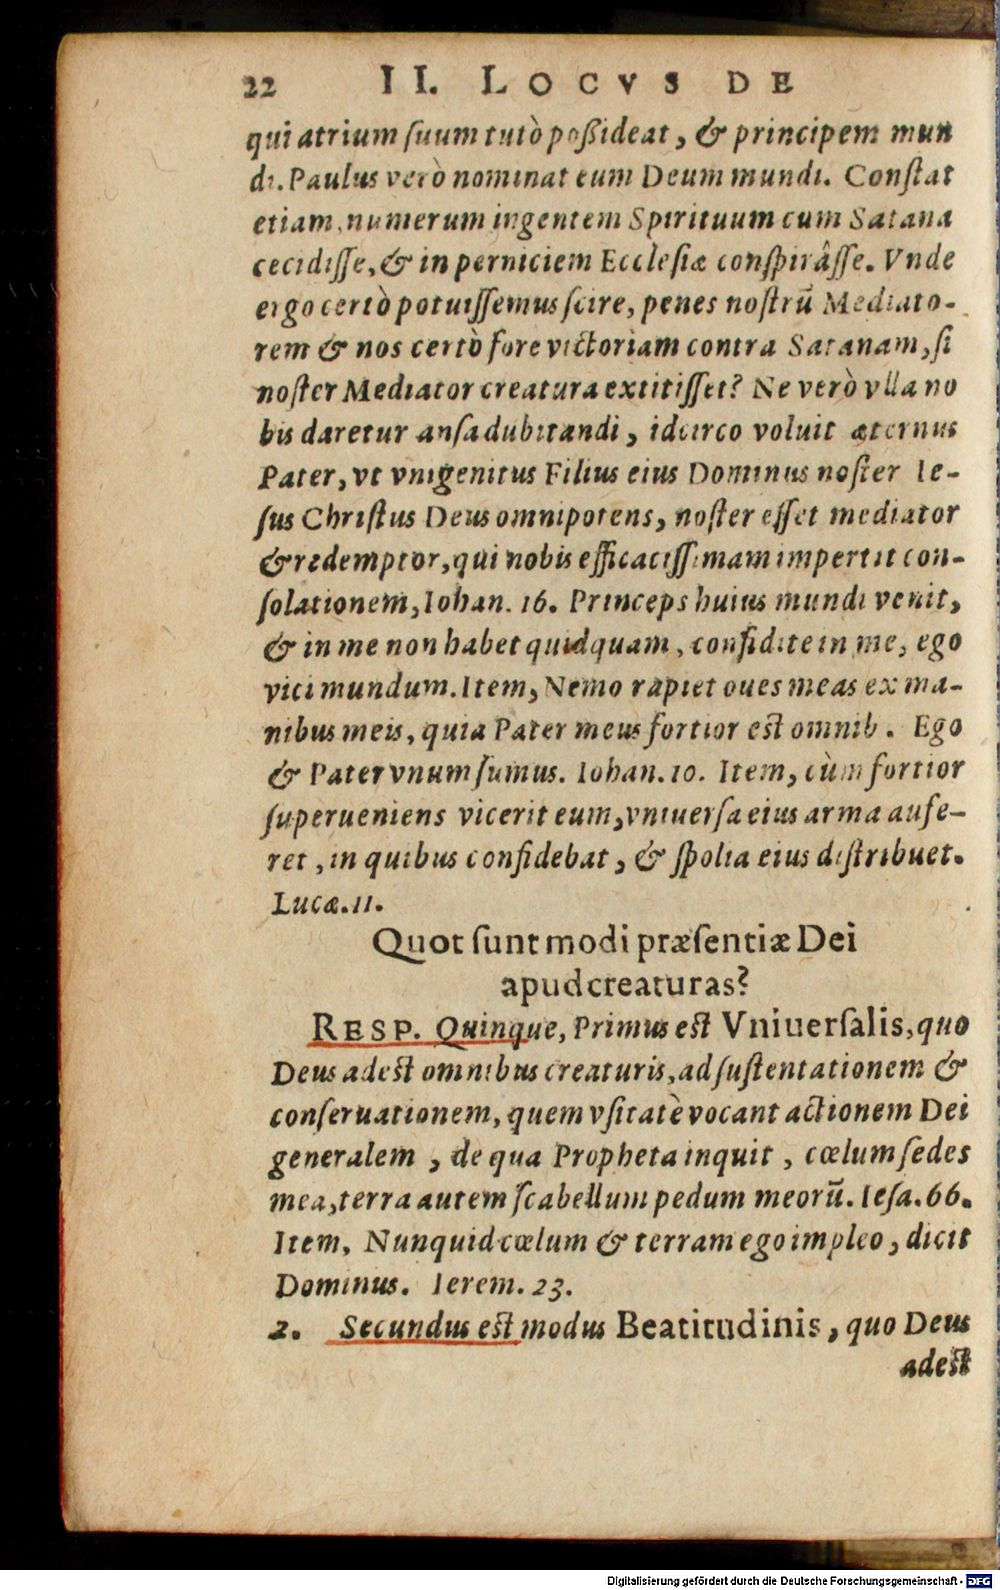 22 II. LOCVS DE
qui atrium ſuum tutò poßideat, & principem mun
di. Paulus verò nominat eum Deum mundi. Conſtat
etiam, numerum ingentem Spirituum cum Satana
cecidiſſe, & in perniciem Eccleſiæ conſpirâſſe. Vnde
ergo certò potuiſſemus ſcire, penes noſtrũ Mediato-
rem & nos certò fore victoriam contra Satanam, ſi
noſter Mediator creatura extitiſſet? Ne verò vlla no
bis daretur anſa dubitandi, idcirco voluit æternus
Pater, vt vnigenitus Filius eius Dominus noſter Ie-
ſus Chriſtus Deus omnipotens, noſter eſſet mediator
& redemptor, qui nobis efficaciſſimam impertit con-
ſolationem, Iohan. 16. Princeps huius mundi venit,
& in me non habet quidquam, confidite in me, ego
vici mundum. Item, Nemo rapiet oues meas ex ma-
nibus meis, quia Pater meus fortior eſt omnib. Ego
& Pater vnum ſumus. Iohan. 10. Item, cùm fortior
ſuperueniens vicerit eum, vniuerſa eius arma aufe-
ret, in quibus confidebat, & ſpolia eius diſtribuet.
Lucæ. 11.
Quot ſunt modi præſentiæ Dei
apud creaturas?
RESP. Quinque, Primus eſt Vniuerſalis, quo
Deus adeſt omnibus creaturis, ad ſuſtentationem &
conſeruationem, quem vſitatè vocant actionem Dei
generalem, de qua Propheta inquit, cœlum ſedes
mea, terra autem ſcabellum pedum meorũ. Ieſa. 66.
Item, Nunquid cœlum & terram ego impleo, dicit
Dominus. Ierem. 23.
2. Secundus eſt modus Beatitudinis, quo Deus
adeſt
Digitalisierung gefördert durch die Deutsche Forschungsgemeinschaft - DFG